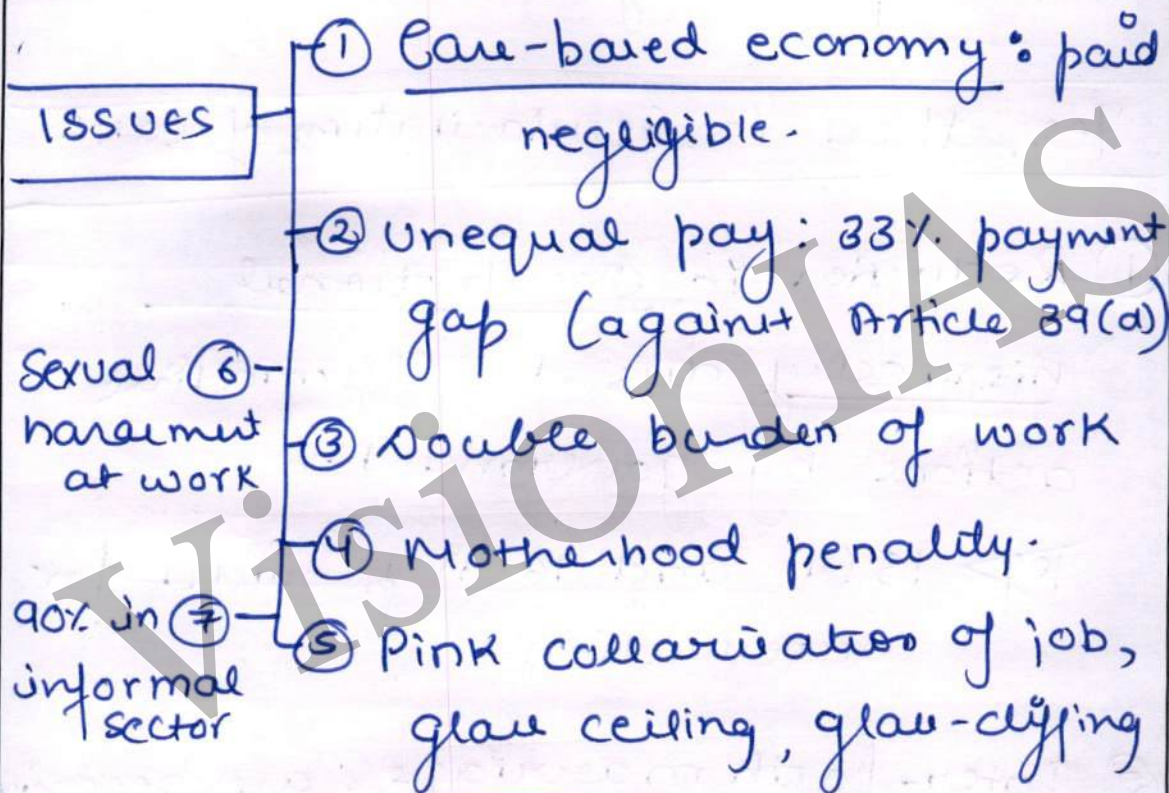 ISSUES
① Care-based economy : paid
negligible.
② Unequal pay : 33% payment
gap (against Article 39(a)
③ Double burden of work
④ Motherhood penality.
⑤ Pink collarisation of job,
glass ceiling, glass-cliffing
Sexual ⑥
harassment
at work
90% in ⑦
informal
sector
VisionIAS